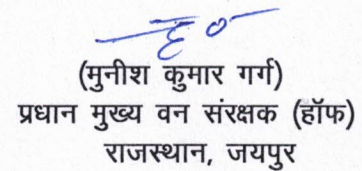 (मुनीश कुमार गर्ग)
प्रधान मुख्य वन संरक्षक (हॉफ)
राजस्थान, जयपुर